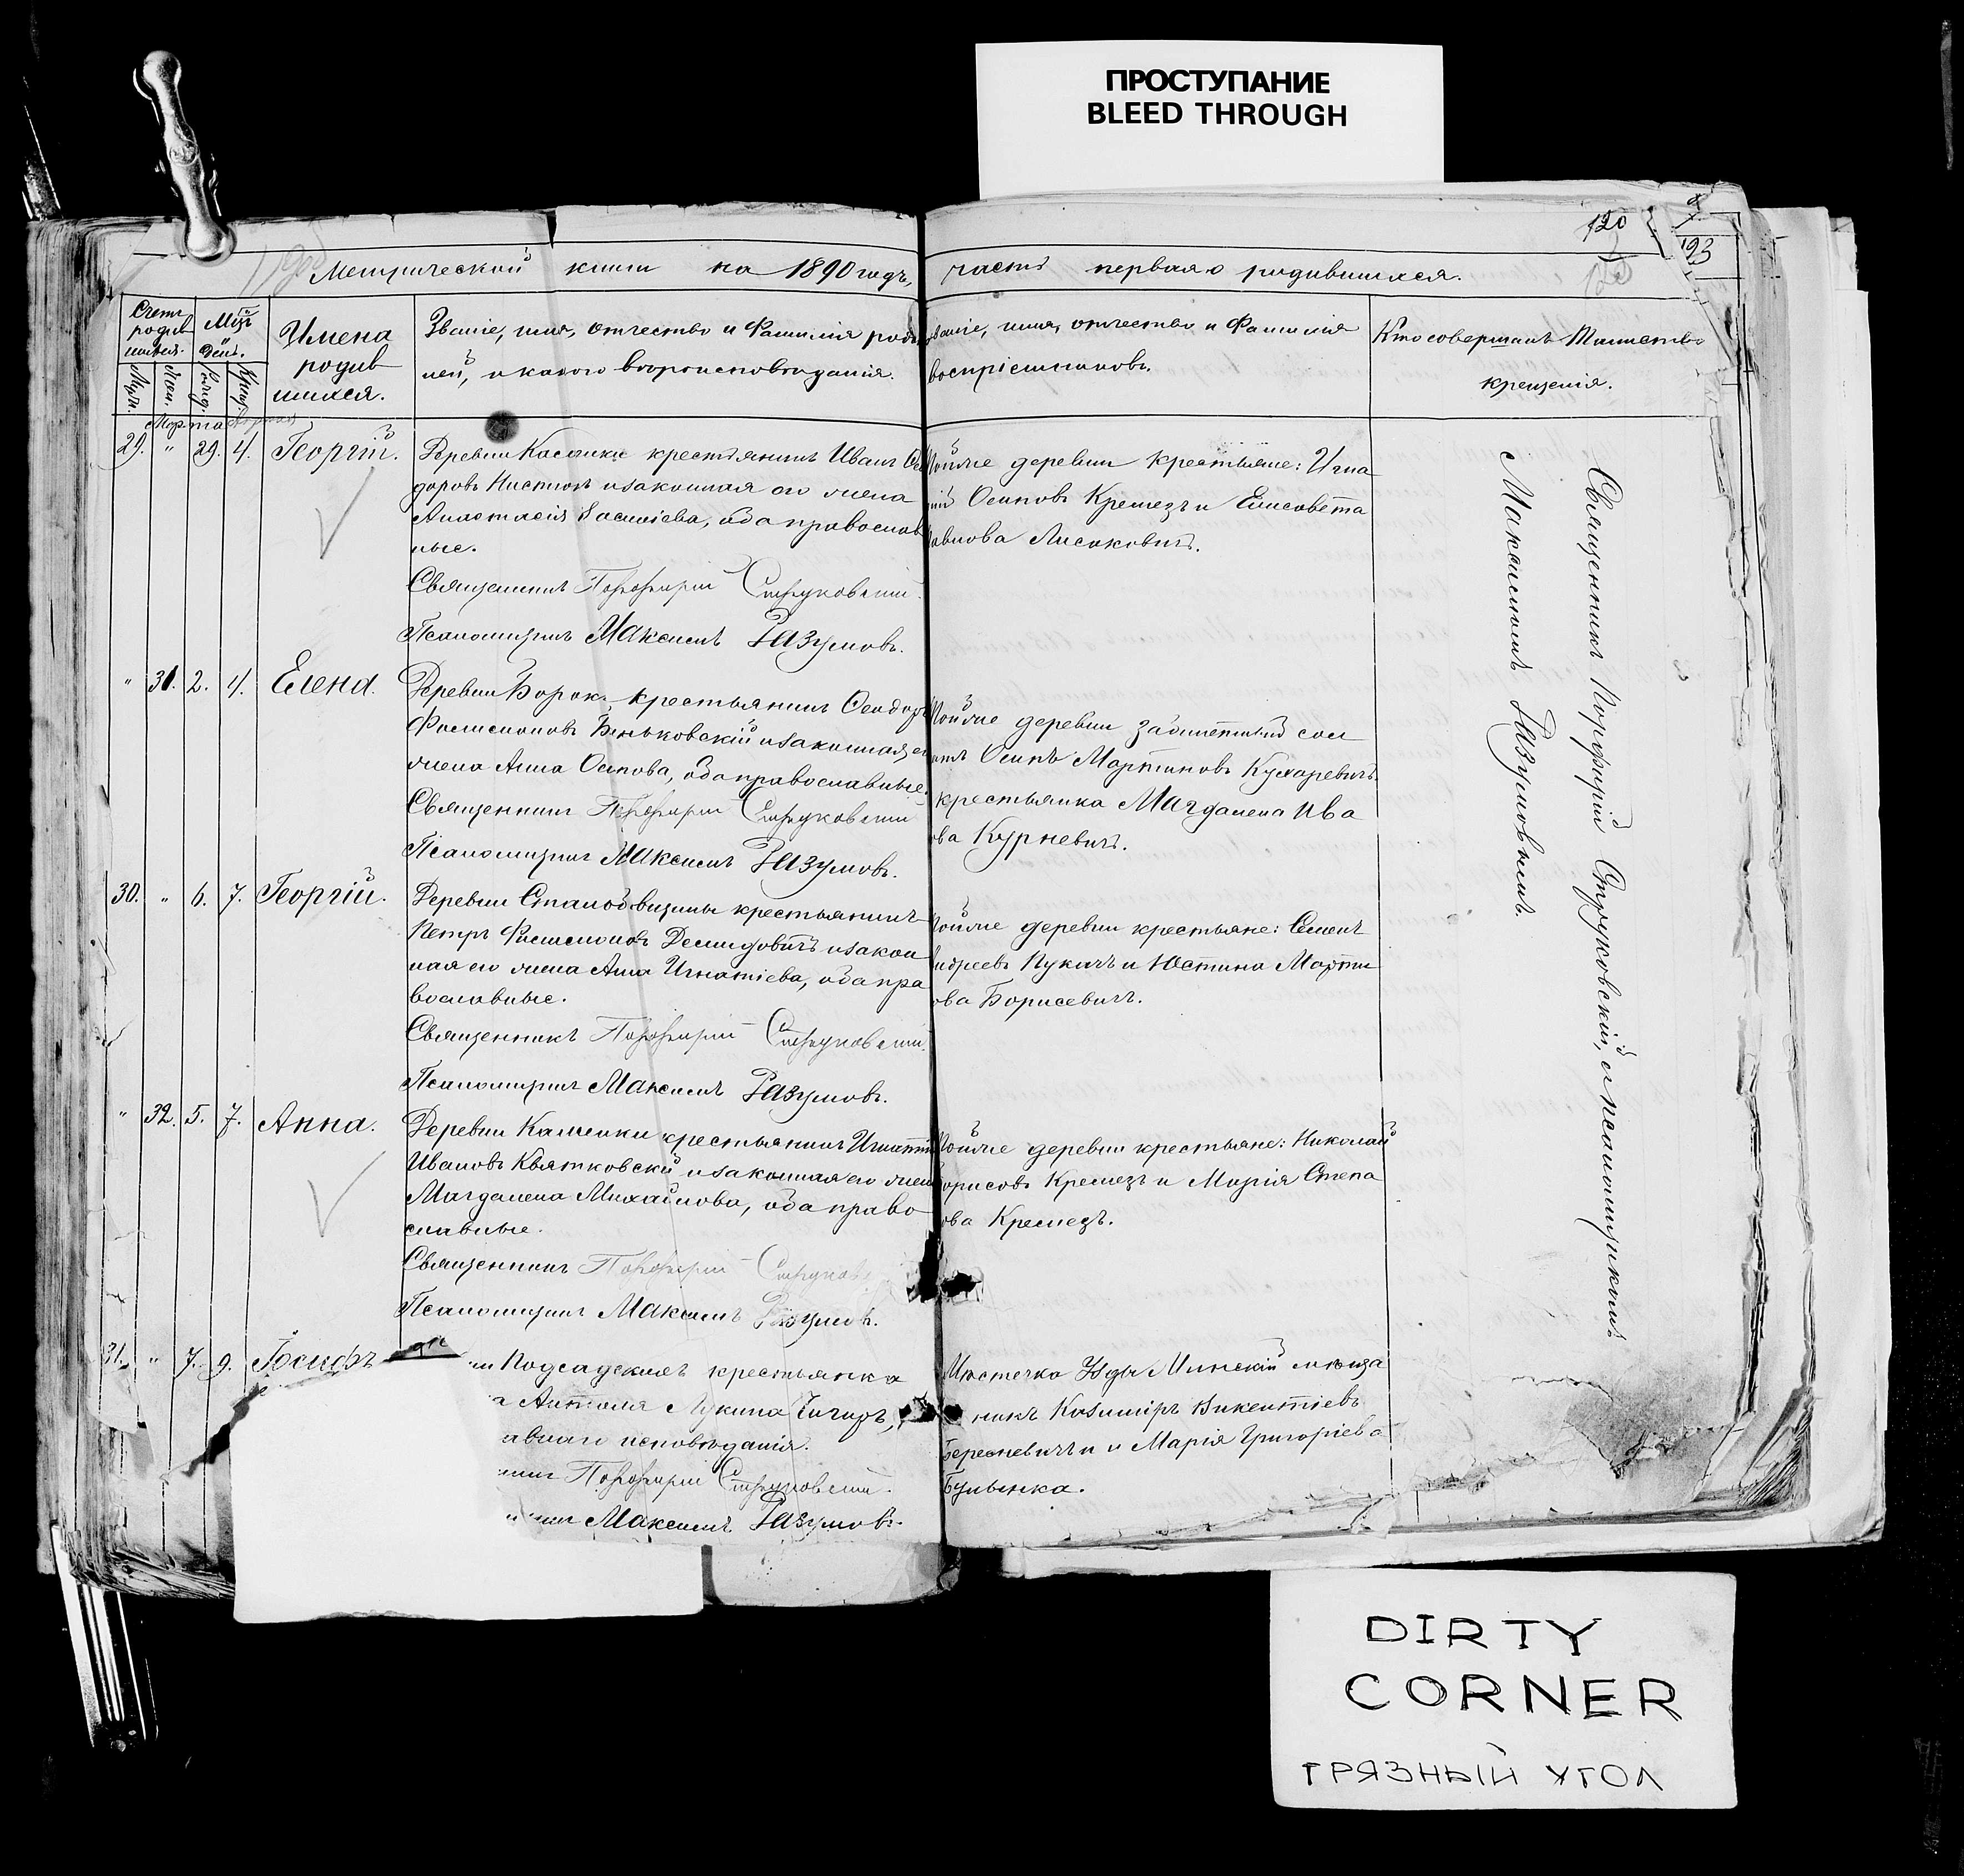 ПРОСТУПАНИЕ
BLEED THROUGH
120
193
Метрической книги на 1890 годъ,
часть первая о родившихся.
Счетъ родив шихся.
Мѣс. День.
Имена
родив
шихся.
Званіе, имя, отчество и Фамилія роди
лей, и какого вѣроисповѣданія.
Званіе, имя, отчество и Фамилія
воспріемниковъ.
Кто совершалъ Таинство
крещенія.
Марта
29. " 29. 4. Георгій.
крестьянинъ Иванъ
доровъ и законная его жена
Анастасія Василіева, оба православ
ные.
Священникъ Порфирій Струковскій.
Псаломщикъ Максимъ Разумовъ.
той же деревни крестьяне: Игна
тій Осиповъ Кремезъ и Елисавета
Лисаковичъ.
" 31. 2. 4. Елена.
Деревни Борок. крестьянинъ Ѳеодоръ
Филимоновъ Веньковскій и законная его
жена Анна Осипова, оба православные.
Священникъ Порфирій Струковскій
Псаломщикъ Максимъ Разумовъ.
той же деревни запасный сол
датъ Осипъ Мартиновъ Кухаревичъ.
крестьянка Магдалена Ива
ова Курневичъ.
30. " 6. 7. Георгій.
Деревни крестьянинъ
Петръ Филимоновъ Демидовичъ и закон
ная его жена Анна Игнатіева, оба пра
вославные.
Священникъ Порфирій Струковскій.
Псаломщикъ Максимъ Разумовъ.
той же деревни крестьяне: Семенъ
Андреевъ Пукачъ и Юстина Марти
ова Борисевичъ.
" 32. 5. 7. Анна.
Деревни Каменки крестьянинъ Игнатій
Ивановъ Квятковскій и законная его жена
Магдалена Михайлова, оба право
славные.
Священникъ Порфирій Струковс
Псаломщикъ Максимъ Разумовъ.
той же деревни крестьяне: Николай
Борисовъ Кремезъ и Марія Степа
ова Кремезъ.
31. " 7. 9. Іосифъ
Подсадскихъ крестьянка
а Антоля Лукина Чичиръ,
авнаго исповѣданія.
никъ Порфирій Струковскій.
щикъ Максимъ Разумовъ.
Мѣстечка Узды Минскій мѣща
нинъ Казиміръ Викентіевъ
Бересневичъ и Марія Григоріева
Булынка.
Священникъ Порфирій Струковскій, съ псаломщикомъ
Максимомъ Разумовымъ.
DIRTY
CORNER
ГРЯЗНЫЙ УГОЛ